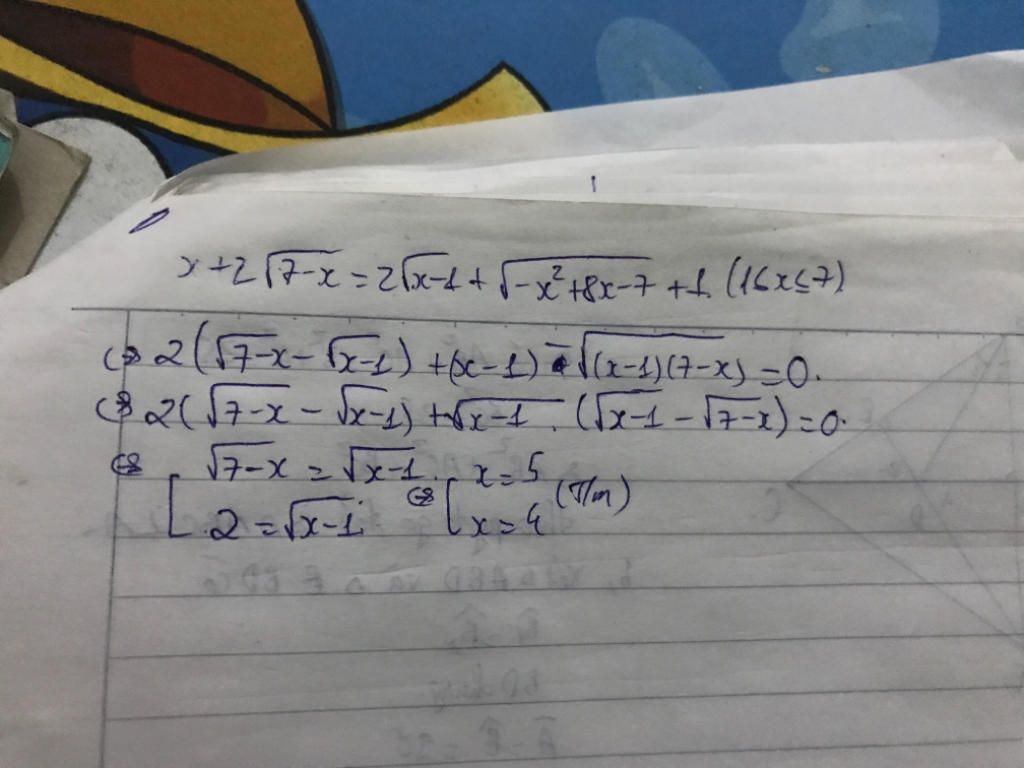 x+2√(7-x) = 2√(x-1) + √(-x²+8x-7) + 1. (1≤x≤7)
⇔ 2(√(7-x) - √(x-1)) + (x-1) - √((x-1)(7-x)) = 0.
⇔ 2(√(7-x) - √(x-1)) + √(x-1) . (√(x-1) - √(7-x)) = 0.
⇔ [ √(7-x) = √(x-1) ⇔ [ x=5 (T/m)
2 = √(x-1) x=4